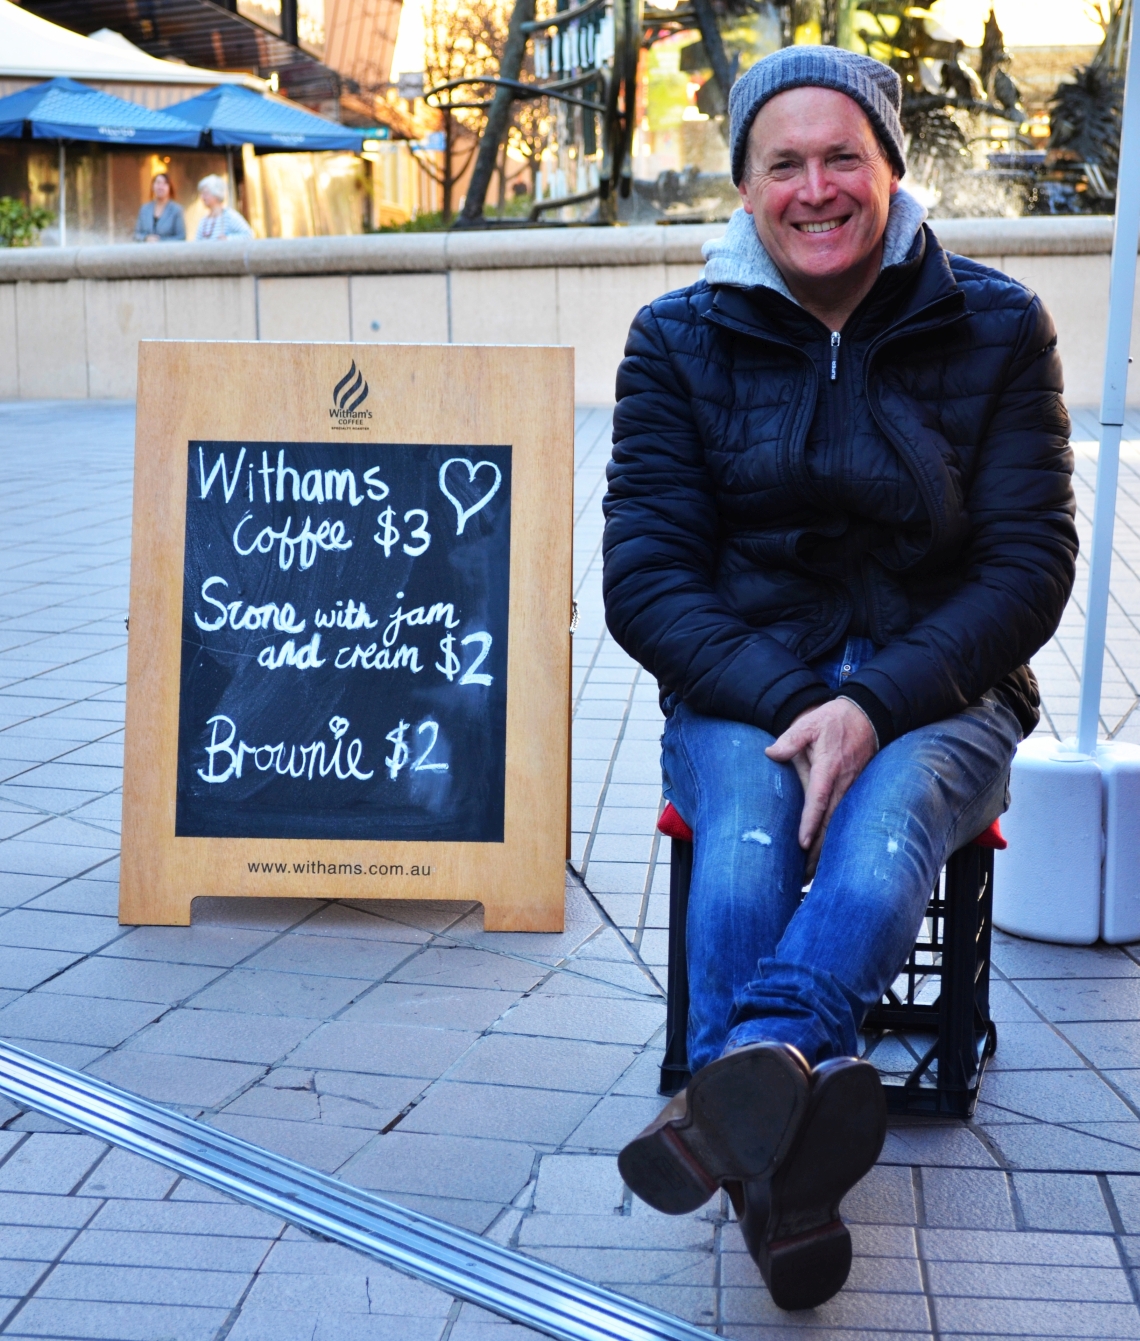 Witham's
COFFEE
SPECIALTY ROASTER
Withams
Coffee $3
Scone with jam
and cream $2
Brownie $2
www.withams.com.au